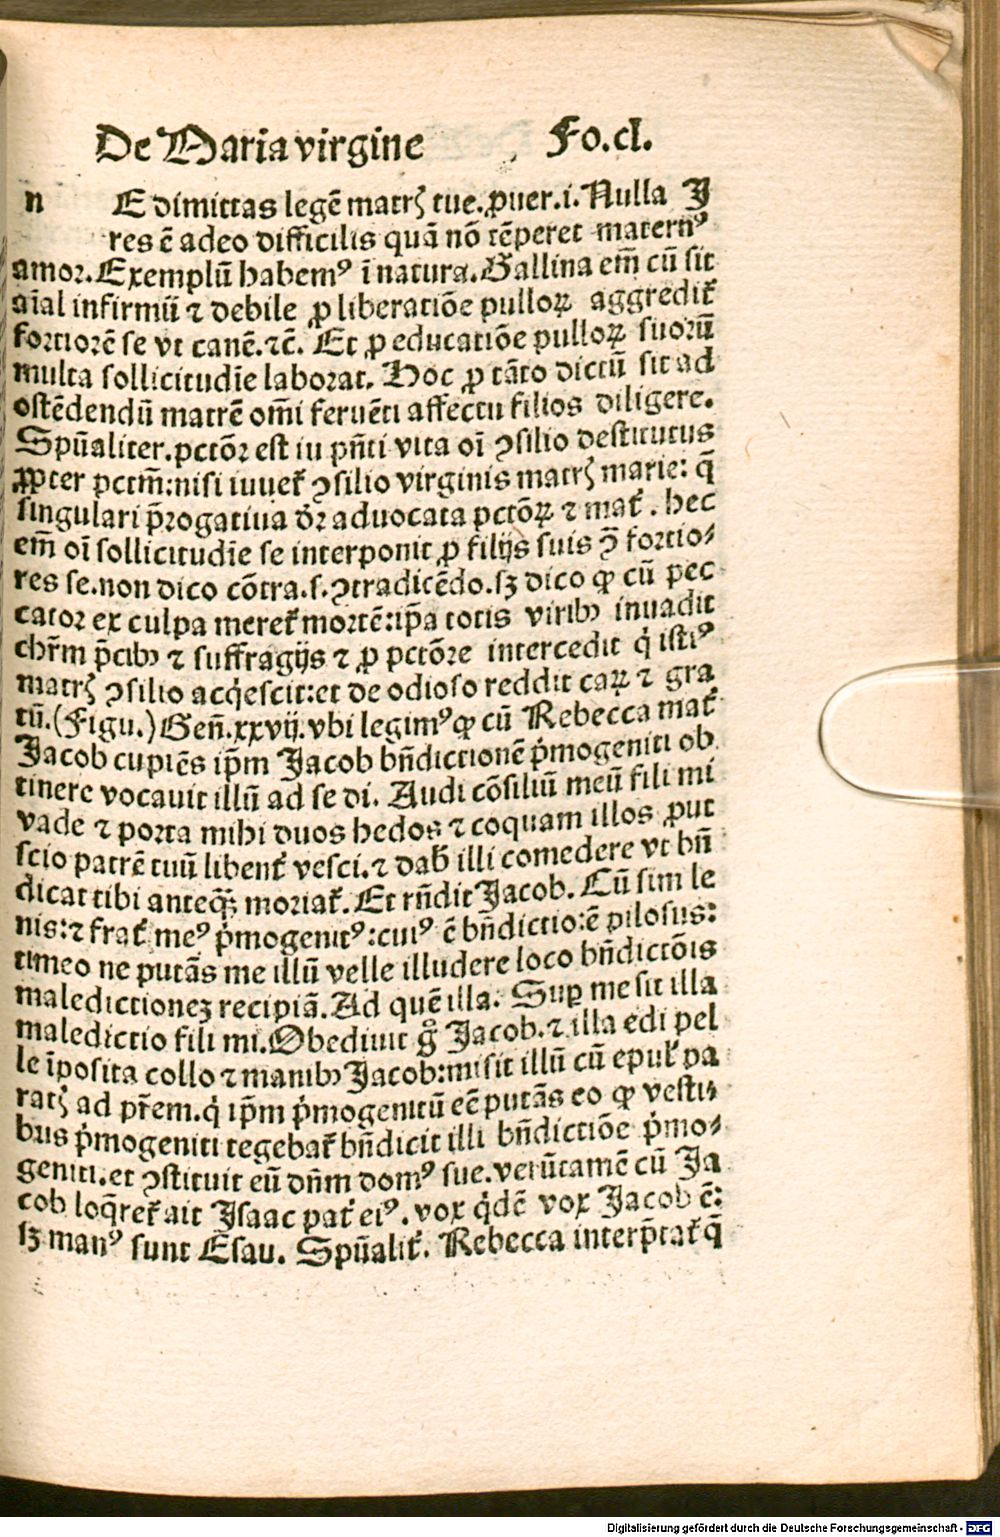 De Maria virgine Fo.cl.
n E dimittas legē matrꝭ tue. ꝓuer.i. Nulla J
res ē adeo difficilis quā nō tēperet maternꝰ
amor. Exemplū habemꝰ ī natura. Gallina em̄ cū sit
aīal infirmū ⁊ debile ꝓ liberatiōe pulloꝝ aggredit̄
fortiorē se vt canē.⁊c̄. Et ꝓ educatiōe pulloꝝ suorū
multa sollicitudīe laborat. Hoc ꝓ tāto dictū sit ad
ostēdendū matrē om̄i feruēti affectu filios diligere.
Spūaliter. pctōꝛ est in pn̄ti vita oī ꝯsilio destitutus
ꝓpter pctm̄: nisi iuuet̄ ꝯsilio virginis matrꝭ marie: q̄
singulari p̄rogatiua dr̄ aduocata pctōꝝ ⁊ mat̄. hec
em̄ oī sollicitudīe se interponit ꝓ filijs suis ꝯ̄ fortio⸗
res se. non dico cōtra.s. ꝯtradicēdo. sꝫ dico ꝙ cū pec
cator ex culpa meret̄ mortē: ip̄a totis viribꝰ inuadit
chr̄m p̄cibꝰ ⁊ suffragijs ⁊ ꝓ pctōre intercedit q̇ istiꝰ
matrꝭ ꝯsilio acq̇escit: et de odioso reddit caꝝ ⁊ gra
tū. (Figu.) Gen̄.xxvij. vbi legimꝰ ꝙ cū Rebecca mat̄
Jacob cupiēs ip̄m Jacob bn̄dictionē ṗmogeniti ob
tinere vocauit illū ad se di. Audi cōsiliū meū fili mi
vade ⁊ porta mihi duos hedos ⁊ coquam illos ꝓut
scio patrē tuū libent̄ vesci. ⁊ dab̄ illi comedere vt bn̄
dicat tibi anteqꝫ̄ moriat̄. Et rn̄dit Jacob. Cū sim le
nis: ⁊ frat̄ meꝰ ṗmogenitꝰ: cuiꝰ ē bn̄dictio: ē pilosus:
timeo ne putās me illū velle illudere loco bn̄dictōis
maledictioneꝫ recipiā. Ad quē illa. Suꝑ me sit illa
maledictio fili mi. Obediuit g̊ Jacob. ⁊ illa edi pel
le īposita collo ⁊ manibꝰ Jacob: misit illū cū epul̄ pa
ratꝭ ad pr̄em. q̇ ip̄m ṗmogenitū eē putās eo ꝙ vesti⸗
bus ṗmogeniti tegebat̄ bn̄dicit illi bn̄dictiōe ṗmo⸗
geniti. et ꝯstituit eū dn̄m domꝰ sue. verūtamē cū Ja
cob loq̄ret̄ ait Jsaac pat̄ eiꝰ. vox q̇dē vox Jacob ē:
sꝫ manꝰ sunt Esau. Spūalit̄. Rebecca interp̄tat̄ q̄
Digitalisierung gefördert durch die Deutsche Forschungsgemeinschaft - DFG